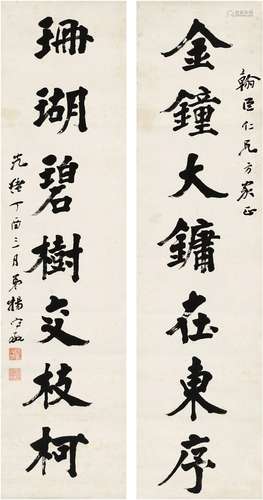 翰臣仁兄方家正
金鐘大鏞在東序
珊瑚碧樹交枝柯
光緒丁酉三月弟楊守敬